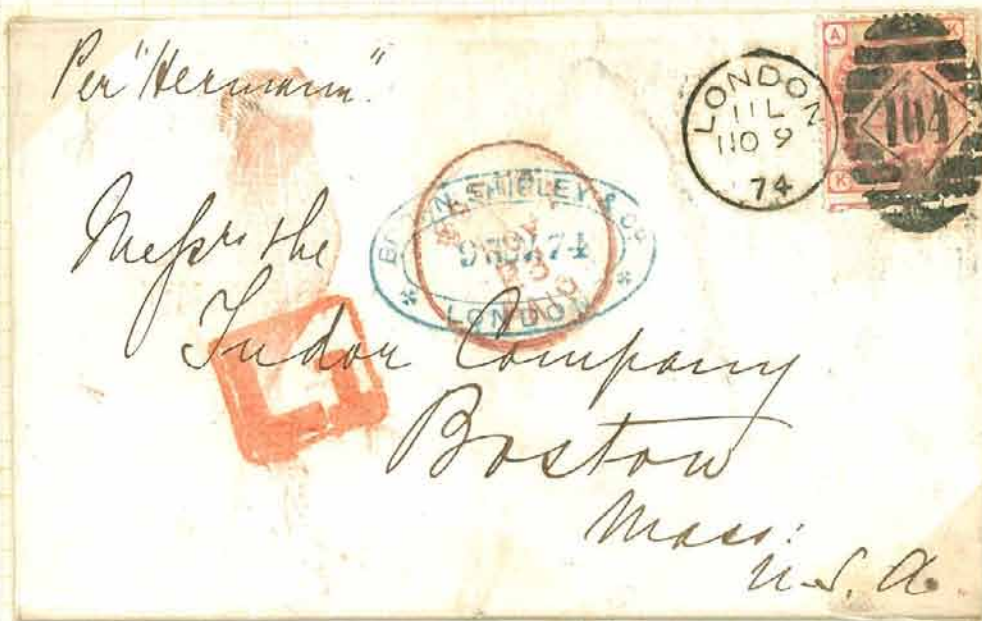 Per "Hermann"
LONDON
11 L
NO 9
74
A K
104
K
BROWN, SHIPLEY & Co
9 NOV 74
LONDON
Messrs the
Tudor Company
Boston
Mass:
U.S.A.
L